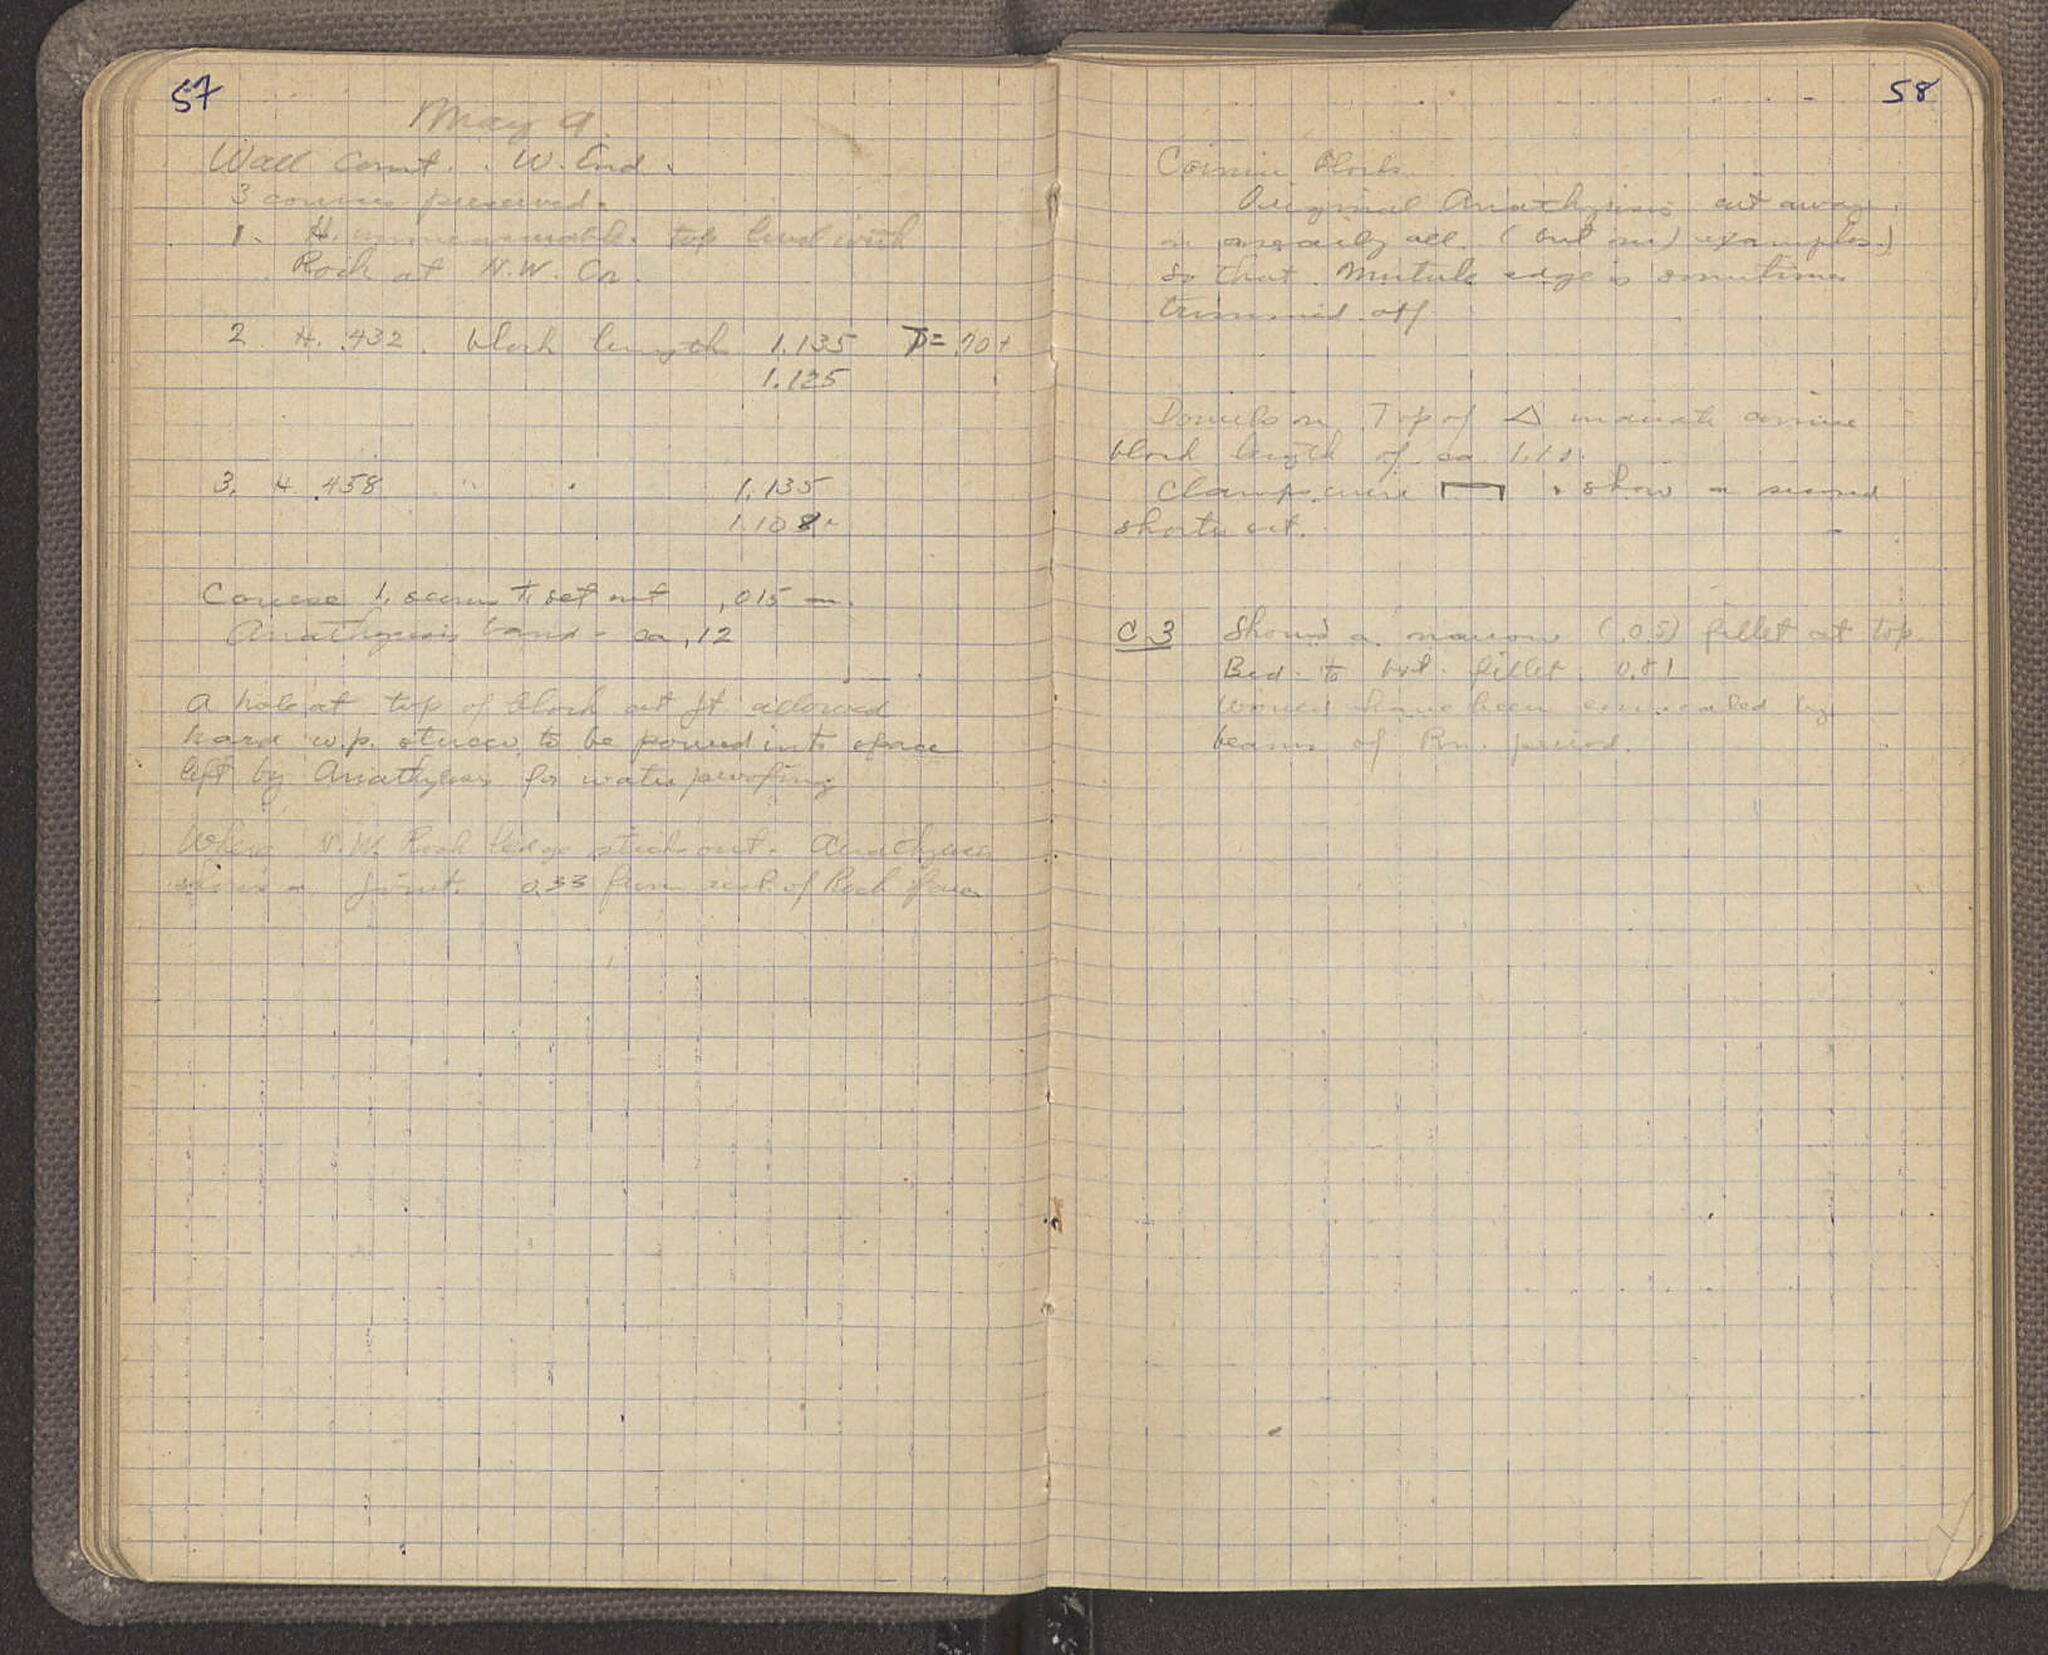 57
May 9.
Wall Cont. W. End.
3 courses preserved.
1. H. unmeasurable. top level with
Rock at N.W. Cor.
2 H. .432. block length 1.135 T= .70+
1.125
3. H .458 " " 1.135
1.108
Course 1. seems to set out .015
Anathyrosis band - ca .12
A hole at top of block at jt. allowed
hard w.p. stucco to be poured into space
left by Anathyrosis for waterproofing
Where N.W. Rock ledge sticks out. Anathyrosis
shows a joint. 0.33 from rest of Rock face
58
Cornice Blocks
Original Anathyrosis cut away
on nearly all (but one) examples.)
so that Mutule edge is sometimes
trimmed off
Dowels on Top of △ indicate cornice
block length of ca
Clamps were show a second
shorter cut.
C.3 Shows a narrow (.05) fillet at top.
Bed. to bot. fillet. 0.81
Would have been concealed by
beams of Rn. period.